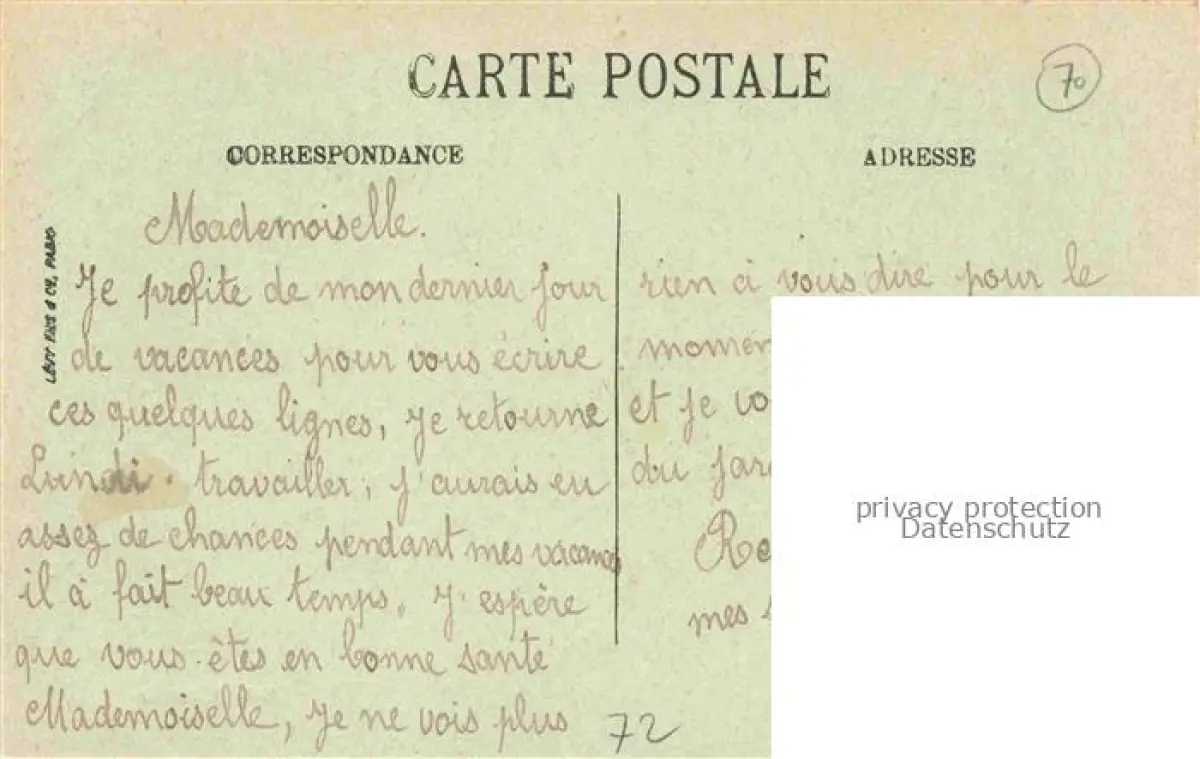 CARTE POSTALE
70
CORRESPONDANCE
ADRESSE
LÉVY FILS & Cie, PARIS
Mademoiselle.
Je profite de mon dernier jour
de vacances pour vous écrire
ces quelques lignes, Je retourne
Lundi. travailler, j'aurais eu
assez de chances pendant mes vacances
il à fait beau temps, J'espère
que vous êtes en bonne santé
Mademoiselle, Je ne vois plus
rien à vous dire pour le
et je
du
mes
72
privacy protection
Datenschutz